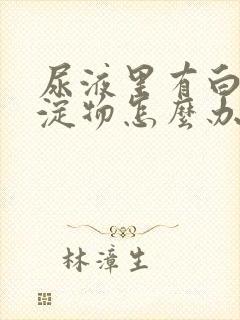 尿液里有白
淀物怎麼办
林漳生